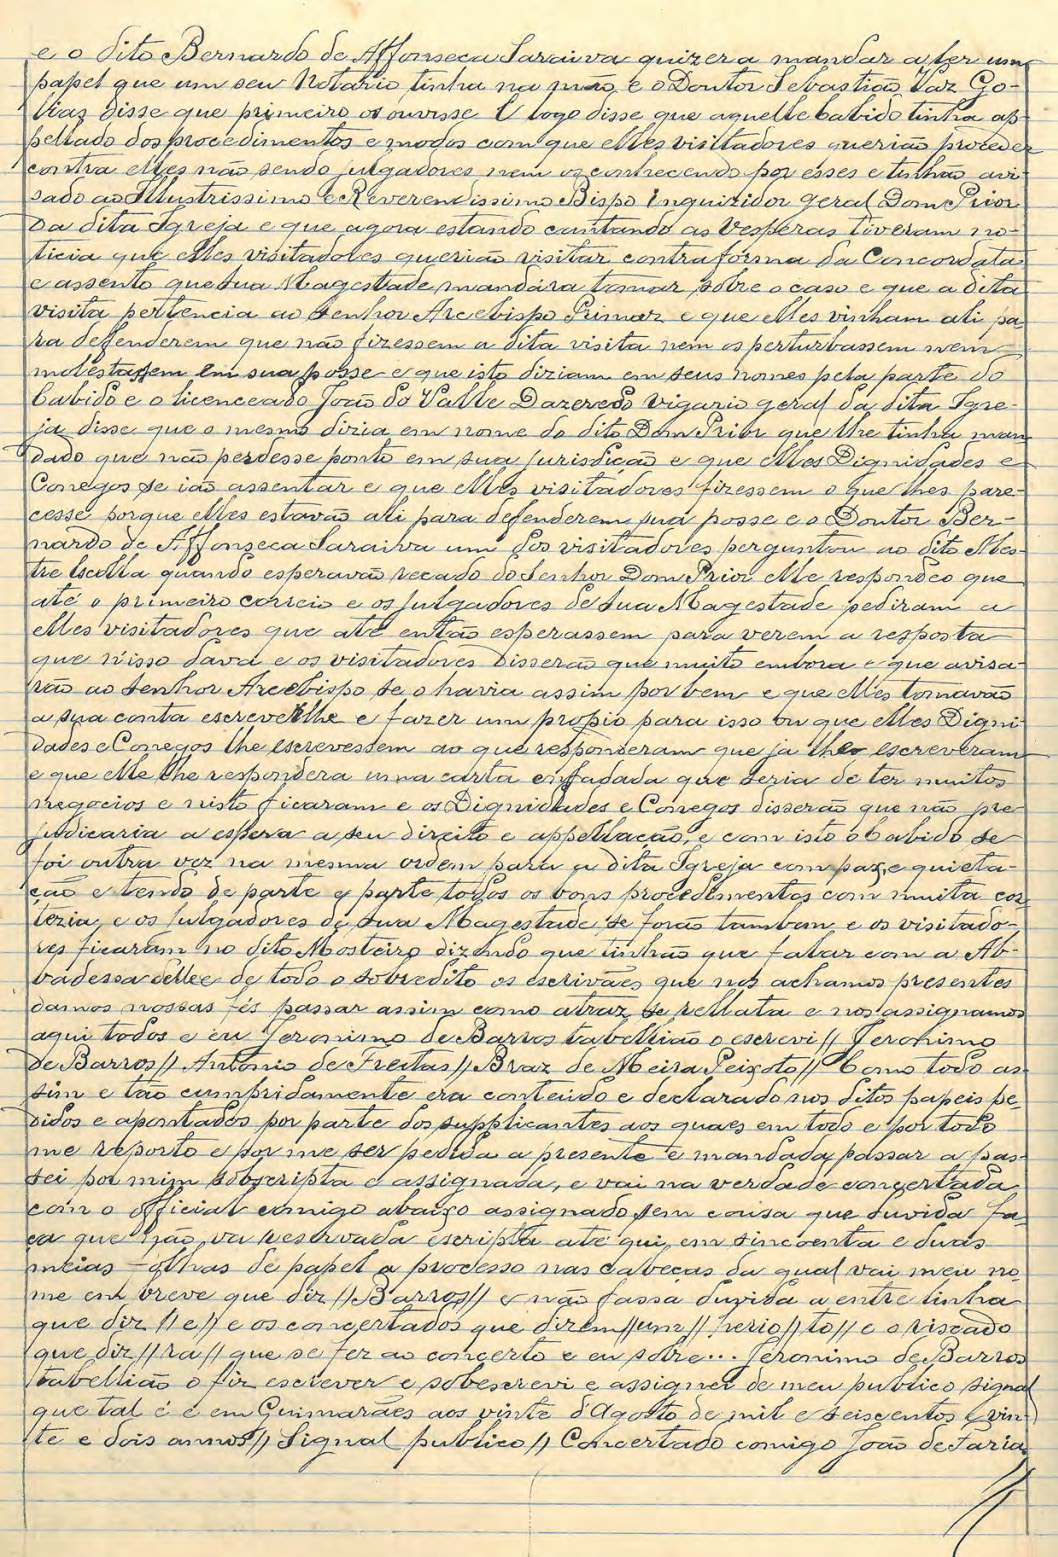 e o dito Bernardo de Affonseca Saraiva quizera mandar a ler um
papel que um seu Notario tinha na mão, e o Doutor Sebastião Vaz Go-
liaz disse que primeiro os ouvisse E logo disse que aquelle Cabido tinha ap-
pellado dos procedimentos e modos com que elles visitadores querião proceder
contra elles não sendo julgadores nem os conhecendo por esses e tinhão avi-
sado ao Illustrissimo e Reverendissimo Bispo Inquizidor geral Dom Prior
da dita Igreja e que agora estando cantando as Vesperas tiveram no-
ticia que elles visitadores querião visitar contra forma da Concordata
e assento que Sua Magestade mandára tomar sobre o caso e que a dita
visita pertencia ao Senhor Arcebispo Primaz e que elles vinham ali pa-
ra defenderem que não fizessem a dita visita nem os perturbassem nem
molestassem em sua posse e que isto diziam em seus nomes pela parte do
Cabido e o licenceado João do Valle Dazeredo Vigario geral da dita Igre-
ja disse que o mesmo dizia em nome do dito Dom Prior que lhe tinha man-
dado que não perdesse ponto em sua jurisdição e que elles Dignidades e
Conegos se ião assentar e que elles visitadores fizessem o que lhes pare-
cesse porque elles estavão ali para defenderem sua posse e o Doutor Ber-
nardo de Affonseca Saraiva um dos visitadores perguntou ao dito Mes-
tre Escolla quando esperavão recado do Senhor Dom Prior elle respondeo que
até o primeiro correio e os julgadores de Sua Magestade pediram a
elles visitadores que até então esperassem para verem a resposta
que n'isso dava e os visitadores disserão que muito embora e que avisa-
rão ao Senhor Arcebispo se o havia assim por bem e que elles tomavão
a sua conta escreverlhe e fazer um propio para isso ou que elles Digni-
dades e Conegos lhe escrevessem ao que responderam que ja lhe escreveram
e que elle lhe respondera uma carta enfadada que seria de ter muitos
negocios e nisto ficaram e os Dignidades e Conegos disserão que não pre-
judicaria a espera a seu direito e appellação, e com isto o Cabido se
foi outra vez na mesma ordem para a dita Igreja com paz, e quieta-
ção e tendo de parte a parte todos os bons procedimentos com muita cor-
tezia, e os julgadores de Sua Magestade, se forão tambem, e os visitado-
res ficaram no dito Mosteiro dizendo que tinhão que fatar com a Ab-
badessa delle e de todo o sobredito os escrivães que nos achamos presentes
damos nossas fés passar assim como atraz se rellata e nos assignamos
aqui todos e eu Jeronimo de Barros tabellião o escrevi // Jeronimo
de Barros // Antonio de Freitas // Braz de Meira Peixoto // Como todo as-
sim e tão cumpridamente era conteúdo e declarado nos ditos papeis pe-
didos e apontados por parte dos supplicantes aos quaes em todo e por todo
me reporto e por me ser pedida a presente e mandada passar a pas-
sei por mim sobscripta e assignada, e vai na verdade concertada
com o official comigo abaixo assignado sem cousa que duvida fa-
ça que não vá resalvada escripta até qui, em sincoenta e duas
meias folhas de papel a processo nas cabeças da qual vai meu no-
me em breve que diz // Barros // e não fassa duvida a entre linha
que diz // e // e os concertados que dizem // um // // to // e o riscado
que diz // ra // que se fez ao concerto e eu sobre... Jeronimo de Barros
tabellião o fiz escrever e sobescrevi e assignei de meu publico signal
que tal é e em Guimarães aos vinte d'Agosto de mil e seiscentos e vin-
te e dois annos // Signal publico // Concertado comigo João de Faria